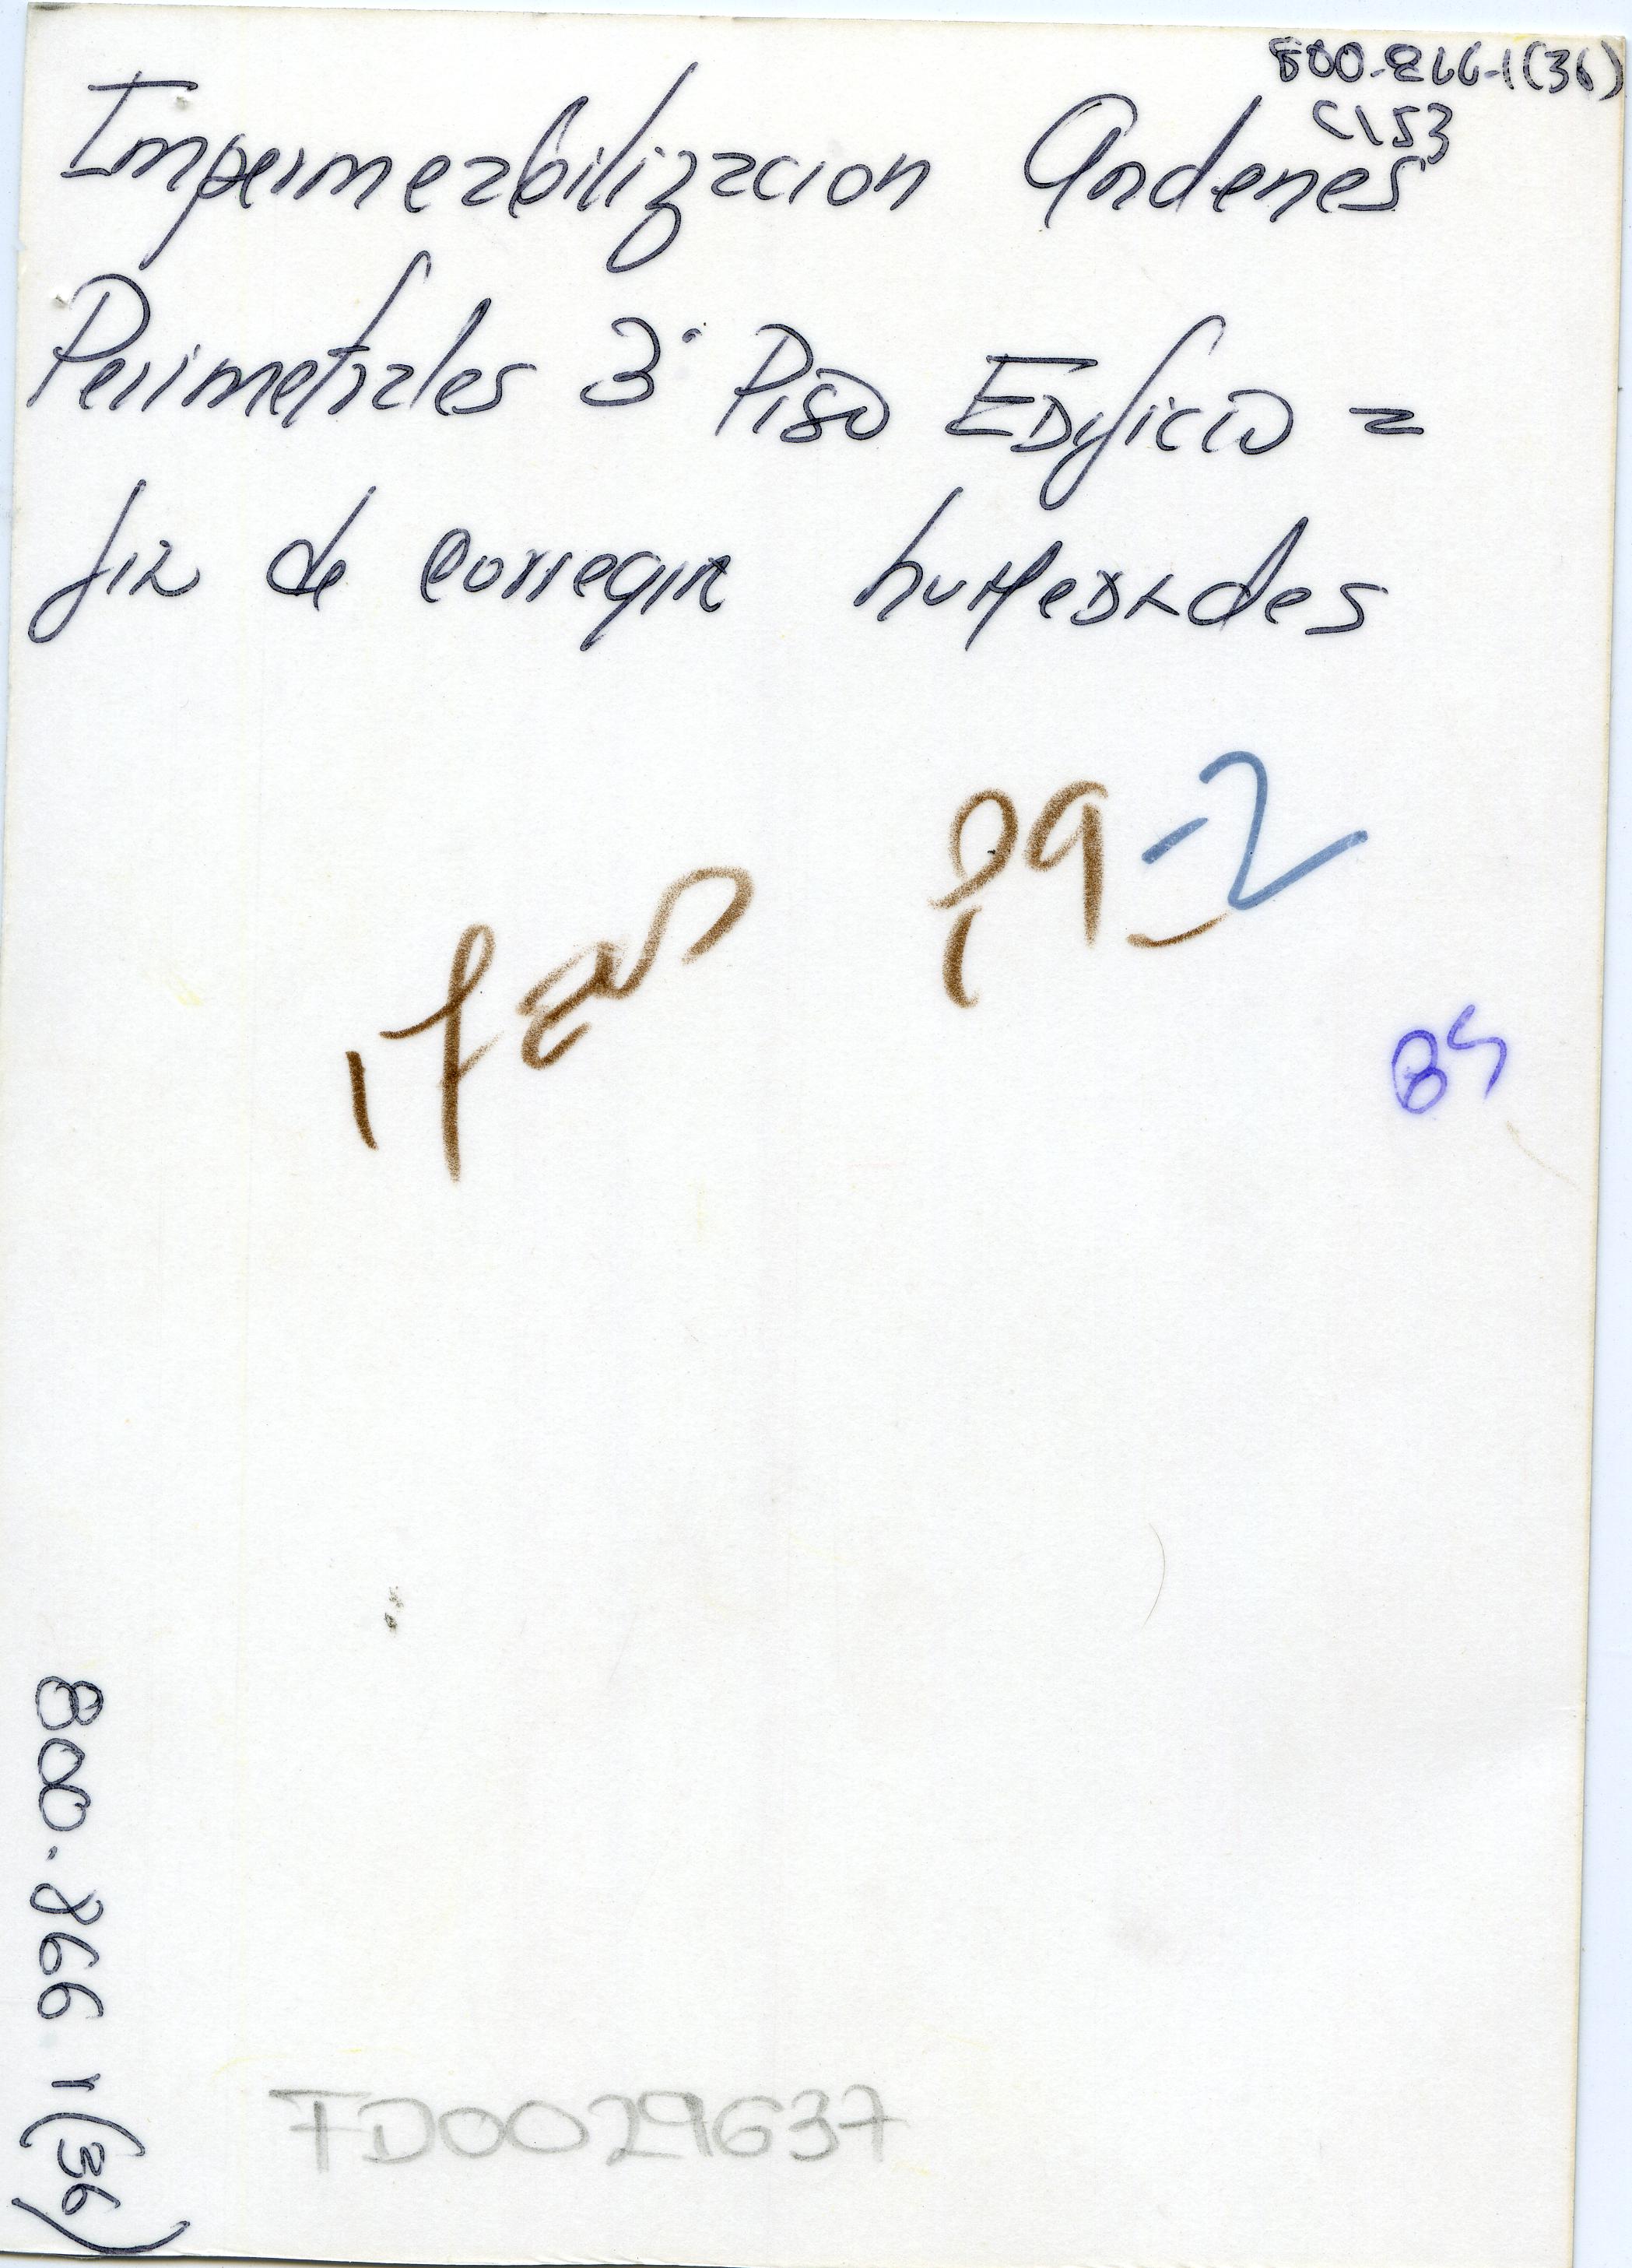 800-866-1(36)
C153
Impermeabilizacion Andenes
Perimetrales 3° Piso Edificio a
fin de corregir humedades
29-2
17
84
800.866 1(36)
FD0029637